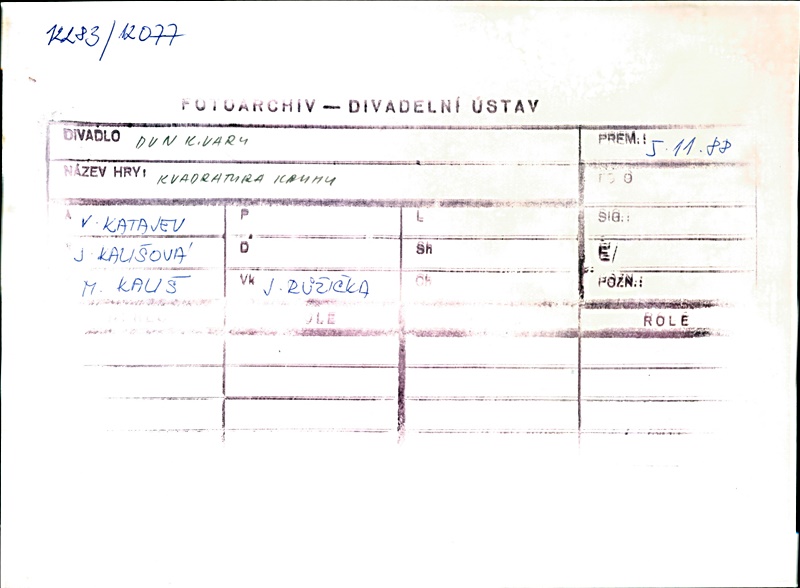 12283/12077
FOTOARCHIV — DIVADELNÍ ÚSTAV
DIVADLO DVN K.VARY PREM.: 5.11.88
NÁZEV HRY: KVADRATURA KRUHU
A V. KATAJEV P L SIG.:
J. KALIŠOVÁ D Sh Č/
M. KALIŠ Vk J. RŮŽIČKA Ch POZN.:
ROLE ROLE